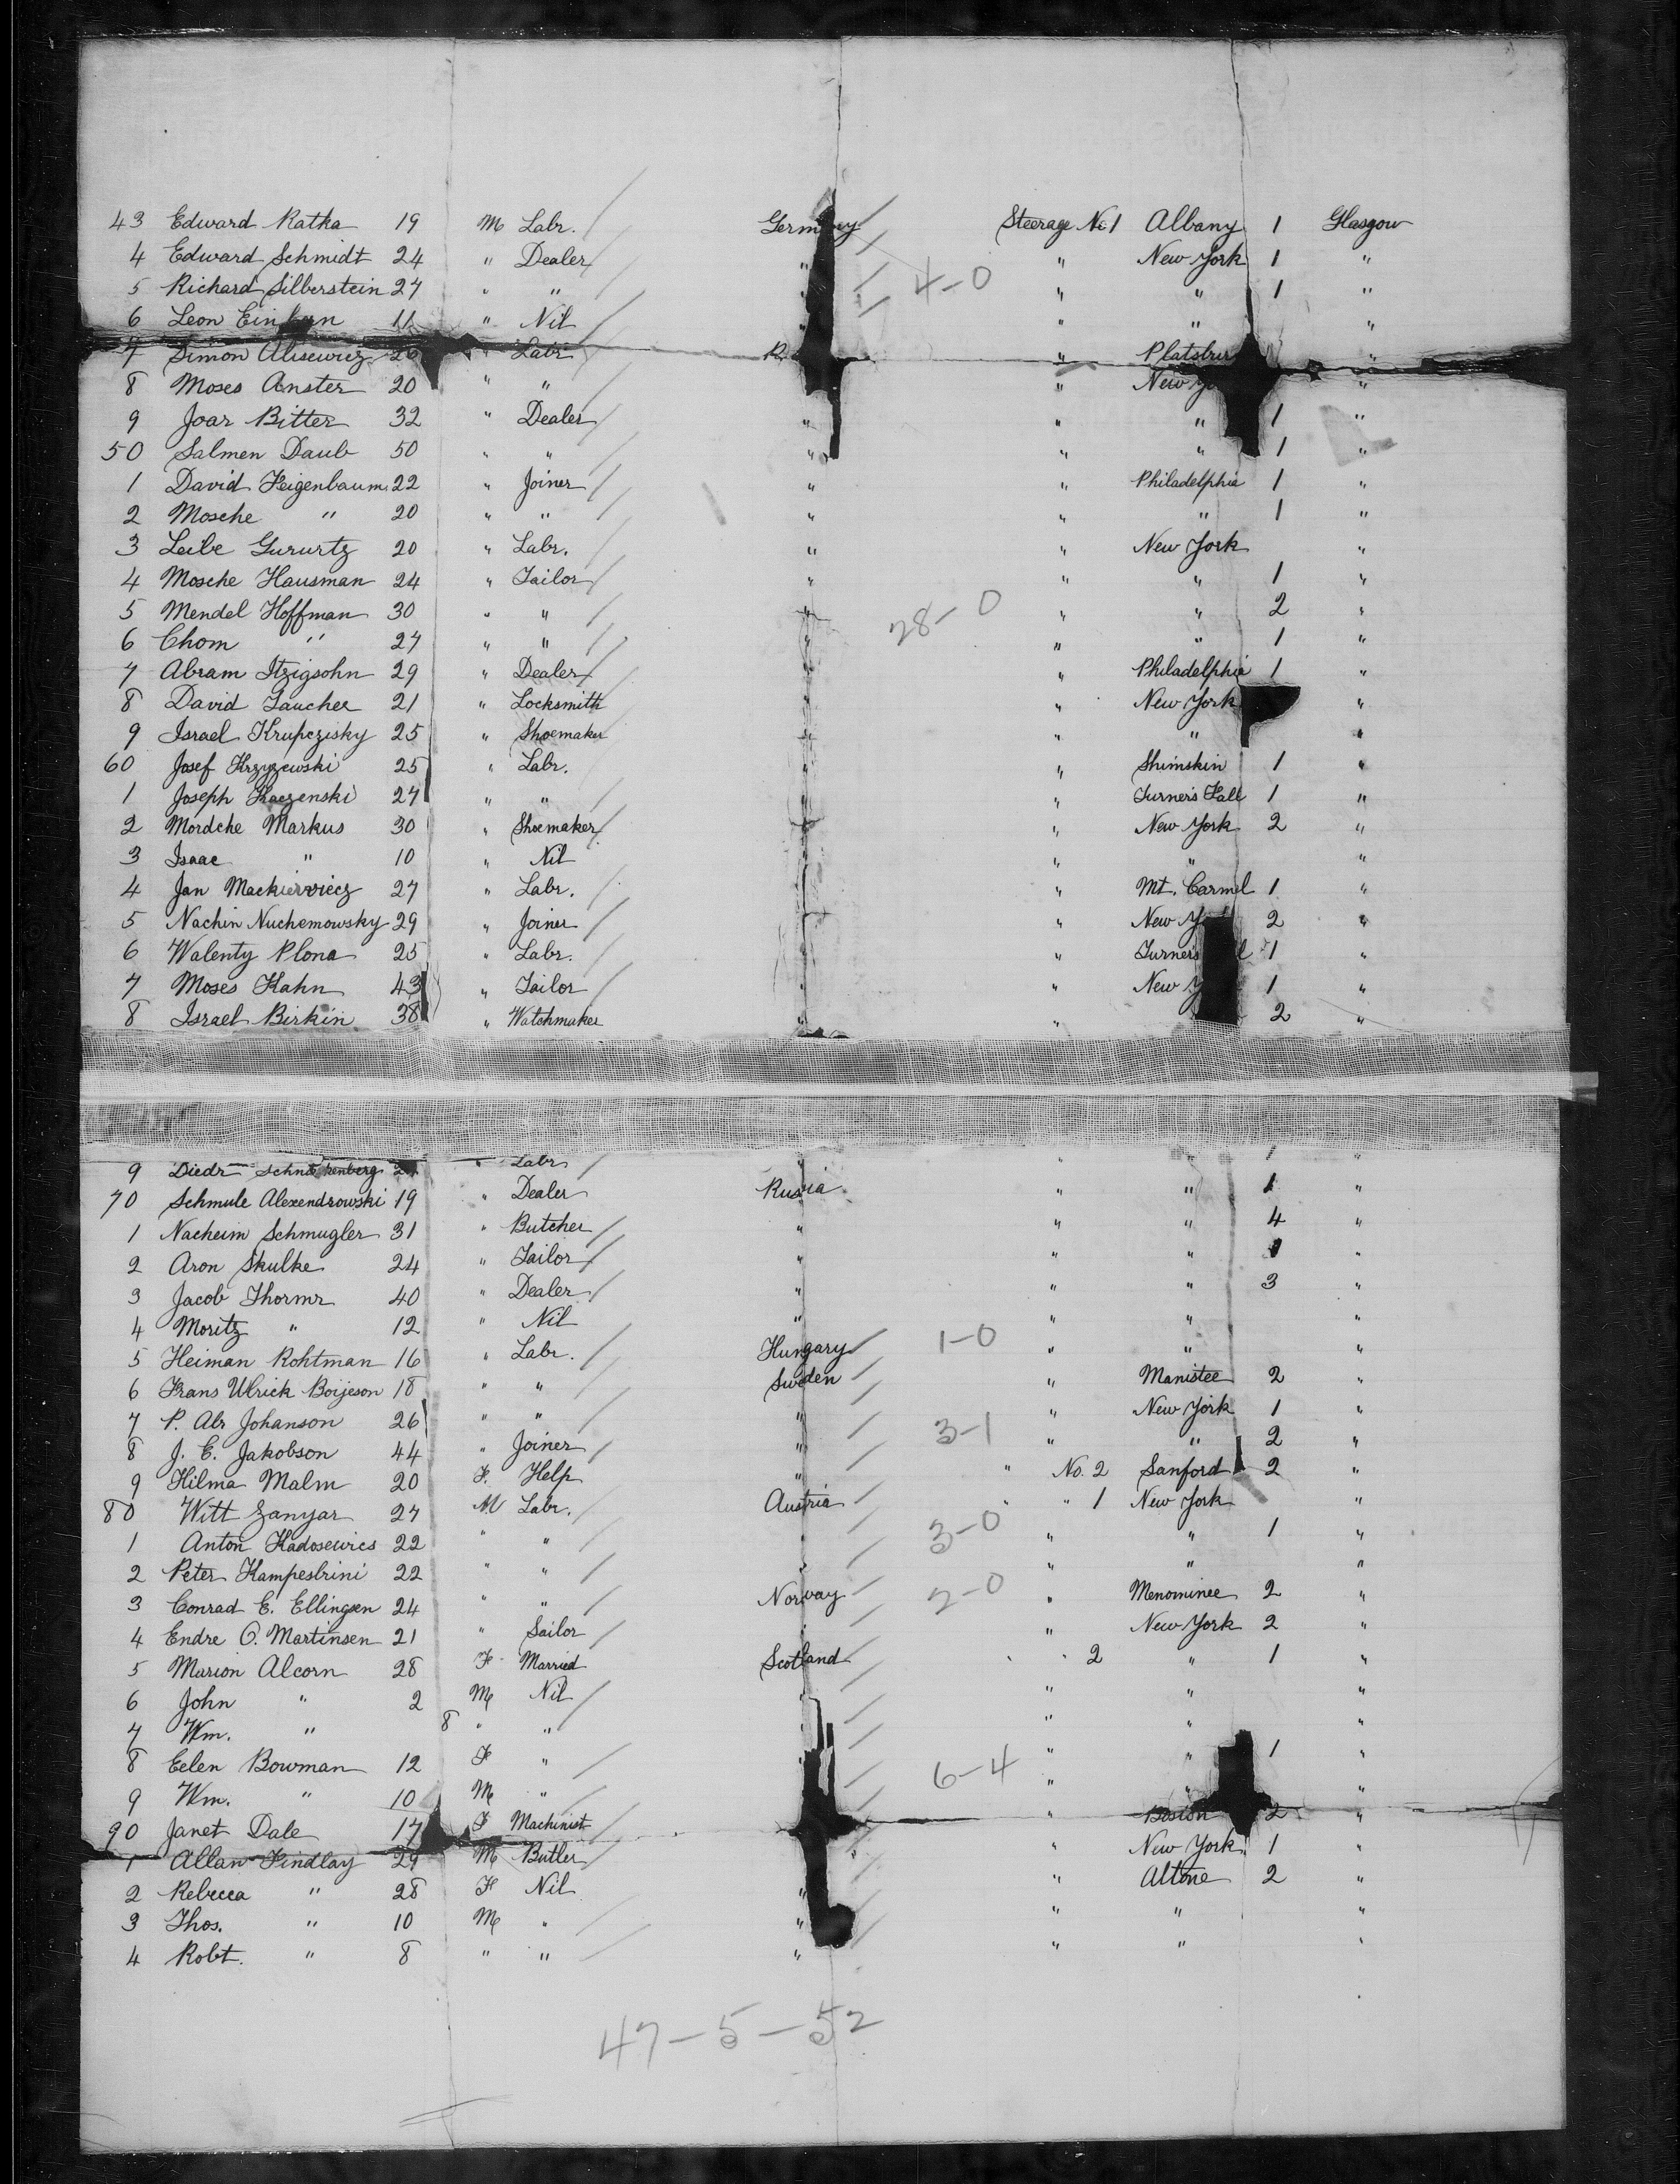 43 Edward Ratka 19 M Labr. Germany Steerage No 1 Albany 1 Glasgow
4 Edward Schmidt 24 " Dealer " " New York 1 "
5 Richard Silberstein 27 " " " 4-0 " " 1 "
6 Leon 11 " Nil " " " "
7 Simon Alisewicz 26 " Labr " "
8 Moses Anster 20 " " " New "
9 Joar Bitter 32 " Dealer " " " 1 "
50 Salmen Daub 50 " " " " " 1 "
1 David Feigenbaum 22 " Joiner " " Philadelphia 1 "
2 Mosche " 20 " " " " " 1 "
3 Leibe Gururtz 20 " Labr. " " New York "
4 Mosche Hausman 24 " Tailor " " " 1 "
5 Mendel Hoffman 30 " " " 28-0 " " 2 "
6 Chom " 27 " " " " " 1 "
7 Abram Itzigsohn 29 " Dealer " " Philadelphia 1 "
8 David Taucher 21 " Locksmith " " New York "
9 Israel Krupczisky 25 " Shoemaker " " " "
60 Josef Krzyzewski 25 " Labr. " " Shimskin 1 "
1 Joseph Kaczenski 27 " " " " Turner's Fall 1 "
2 Mordche Markus 30 " Shoemaker " " New York 2 "
3 Isaac " 10 " Nil " " " "
4 Jan Mackierviecz 27 " Labr. " " Mt. Carmel 1 "
5 Nachin Nuchemowsky 29 " Joiner " " New 2 "
6 Walenty Plona 25 " Labr. " " Turner's 1 "
7 Moses Kahn 43 " Tailor " " New 1 "
8 Israel Birkin 38 " Watchmaker " " 2 "
9 Diedr " Labr " " " 1 "
70 Schmule Alexendrowski 19 " Dealer Russia " " 1 "
1 Nacheim Schmugler 31 " Butcher " " " 4 "
2 Aron Skulke 24 " Tailor " " " 1 "
3 Jacob Thormr 40 " Dealer " " " 3 "
4 Moritz " 12 " Nil " " " "
5 Heiman Rohtman 16 " Labr. Hungary 1-0 " " "
6 Frans Ulrick Boijeson 18 " " Sweden " Manistee 2 "
7 P. Alr Johanson 26 " " " 3-1 " New York 1 "
8 J. E. Jakobson 44 " Joiner " " " 2 "
9 Hilma Malm 20 F. Help " " No. 2 Sanford 2 "
80 Witt Zanyar 27 M Labr. Austria " " 1 New York "
1 Anton Kadosewics 22 " " " 3-0 " " 1 "
2 Peter Kampestrini 22 " " " " " "
3 Conrad E. Ellingsen 24 " " Norway 2-0 " Menominee 2 "
4 Endre O. Martinsen 21 " Sailor " " New York 2 "
5 Marion Alcorn 28 F Married Scotland " " 2 " 1 "
6 John " 2 M Nil " " " "
7 Wm. " 8 " " " " " "
8 Eelen Bowman 12 F " " " " 1 "
9 Wm. " 10 M " 6-4 " " "
90 Janet Dale 17 F Machinist " Boston 2 "
1 Allan Findlay 29 M Butler " New York 1 "
2 Rebecca " 28 F Nil " " Altone 2 "
3 Thos. " 10 M " " " " "
4 Robt. " 8 " " " " " "
47-5-52